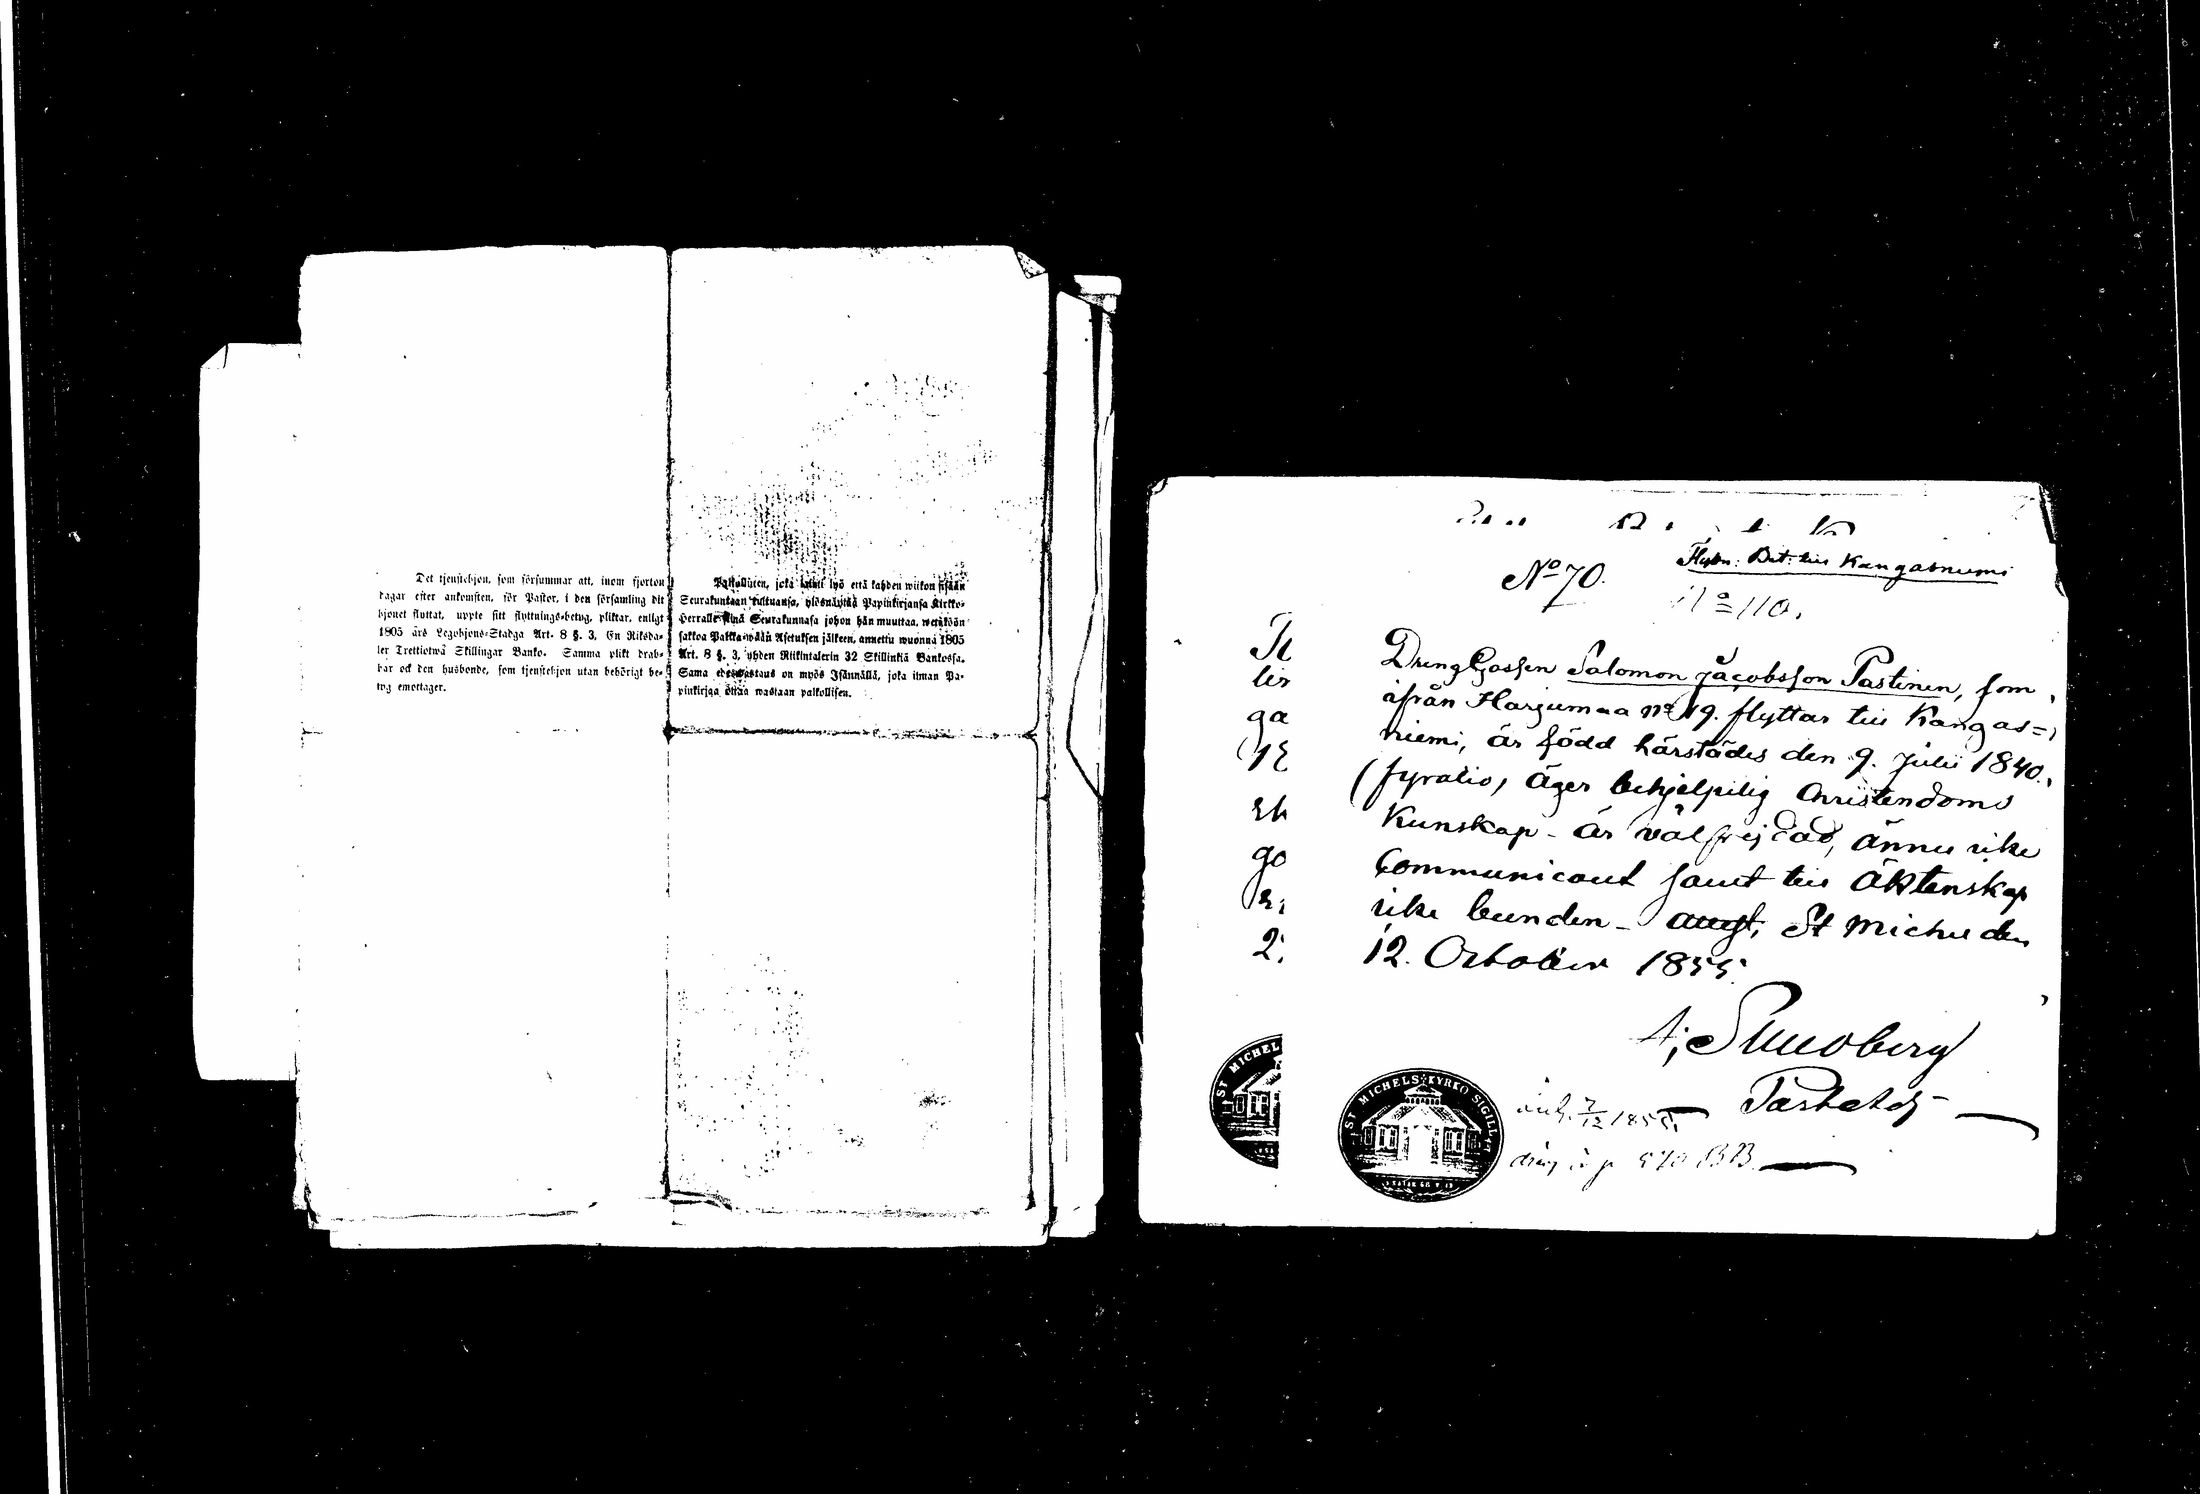 Det tjenstehjon, som försummar att, inom fjorton
dagar efter ankomsten, för Pastor, i den församling dit
hjonet flyttat, uppte sitt flyttnings-betyg, pliktar, enligt
1805 års Legohjons-Stadga Art. 8 §. 3, En Riksda-
ler Trettiotwå Skillingar Banko. Samma plikt drab-
bar ock den husbonde, som tjenstehjon utan behörigt be-
tyg emottager.
Palkollinen, joka lyö että kahden wiikon sisään
Seurakuntaan tultuansa, ylösnäyttää Papinkirjansa Kirkko-
Herralle siinä Seurakunnasa johon hän muuttaa, wetäköön
sakkoa Palkkawään Asetuksen jälkeen, annettu wuonna 1805
Art. 8 §. 3, yhden Riikintalerin 32 Skillinkiä Bankossa.
Sama edeswastaus on myös Isännällä, joka ilman Pa-
pinkirjaa ottaa wastaan palkollisen.
No 70.
Flyttn: Bet: till Kangasniemi
No 110.
DrengGossen Salomon Jacobsson Pastinen, som
ifrån Harjumaa No 19. flyttar till Kangas=
niemi, är född härstädes den 9. Julii 1840.
(fyratio) äger behjelpelig Christendoms
Kunskap - är välfrejdad, ännu icke
Communicant samt till äktenskap
icke bunden - St Michel den
12. October 1855.
ST MICHELS KYRKO SIGILL
ST MICHEL